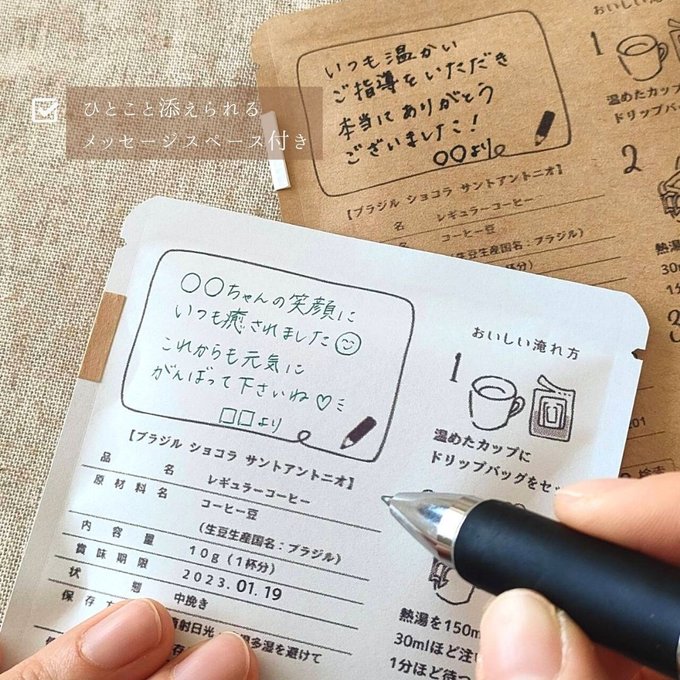 ひとこと添えられる
メッセージスペース付き
いつも温かい
ご指導をいただき
本当にありがとう
ございました!
〇〇より
【ブラジル ショコラ サントアントニオ】
名 レギュラーコーヒー
コーヒー豆
(生豆生産国名:ブラジル)
(1杯分)
おいしい淹れ方
1
温めたカップ
ドリップバッ
2
熱湯
30m
〇〇ちゃんの笑顔に
いつも癒されました
これからも元気に
がんばって下さいね♡
□□より
【ブラジル ショコラ サントアントニオ】
品名 レギュラーコーヒー
原材料名 コーヒー豆
(生豆生産国名:ブラジル)
内容量 10g(1杯分)
賞味期限 2023.01.19
状態 中挽き
保存
射日光
多湿を避けて
おいしい淹れ方
1
温めたカップに
ドリップバッグをセッ
熱湯を150m
30mlほど注
1分ほど待つ